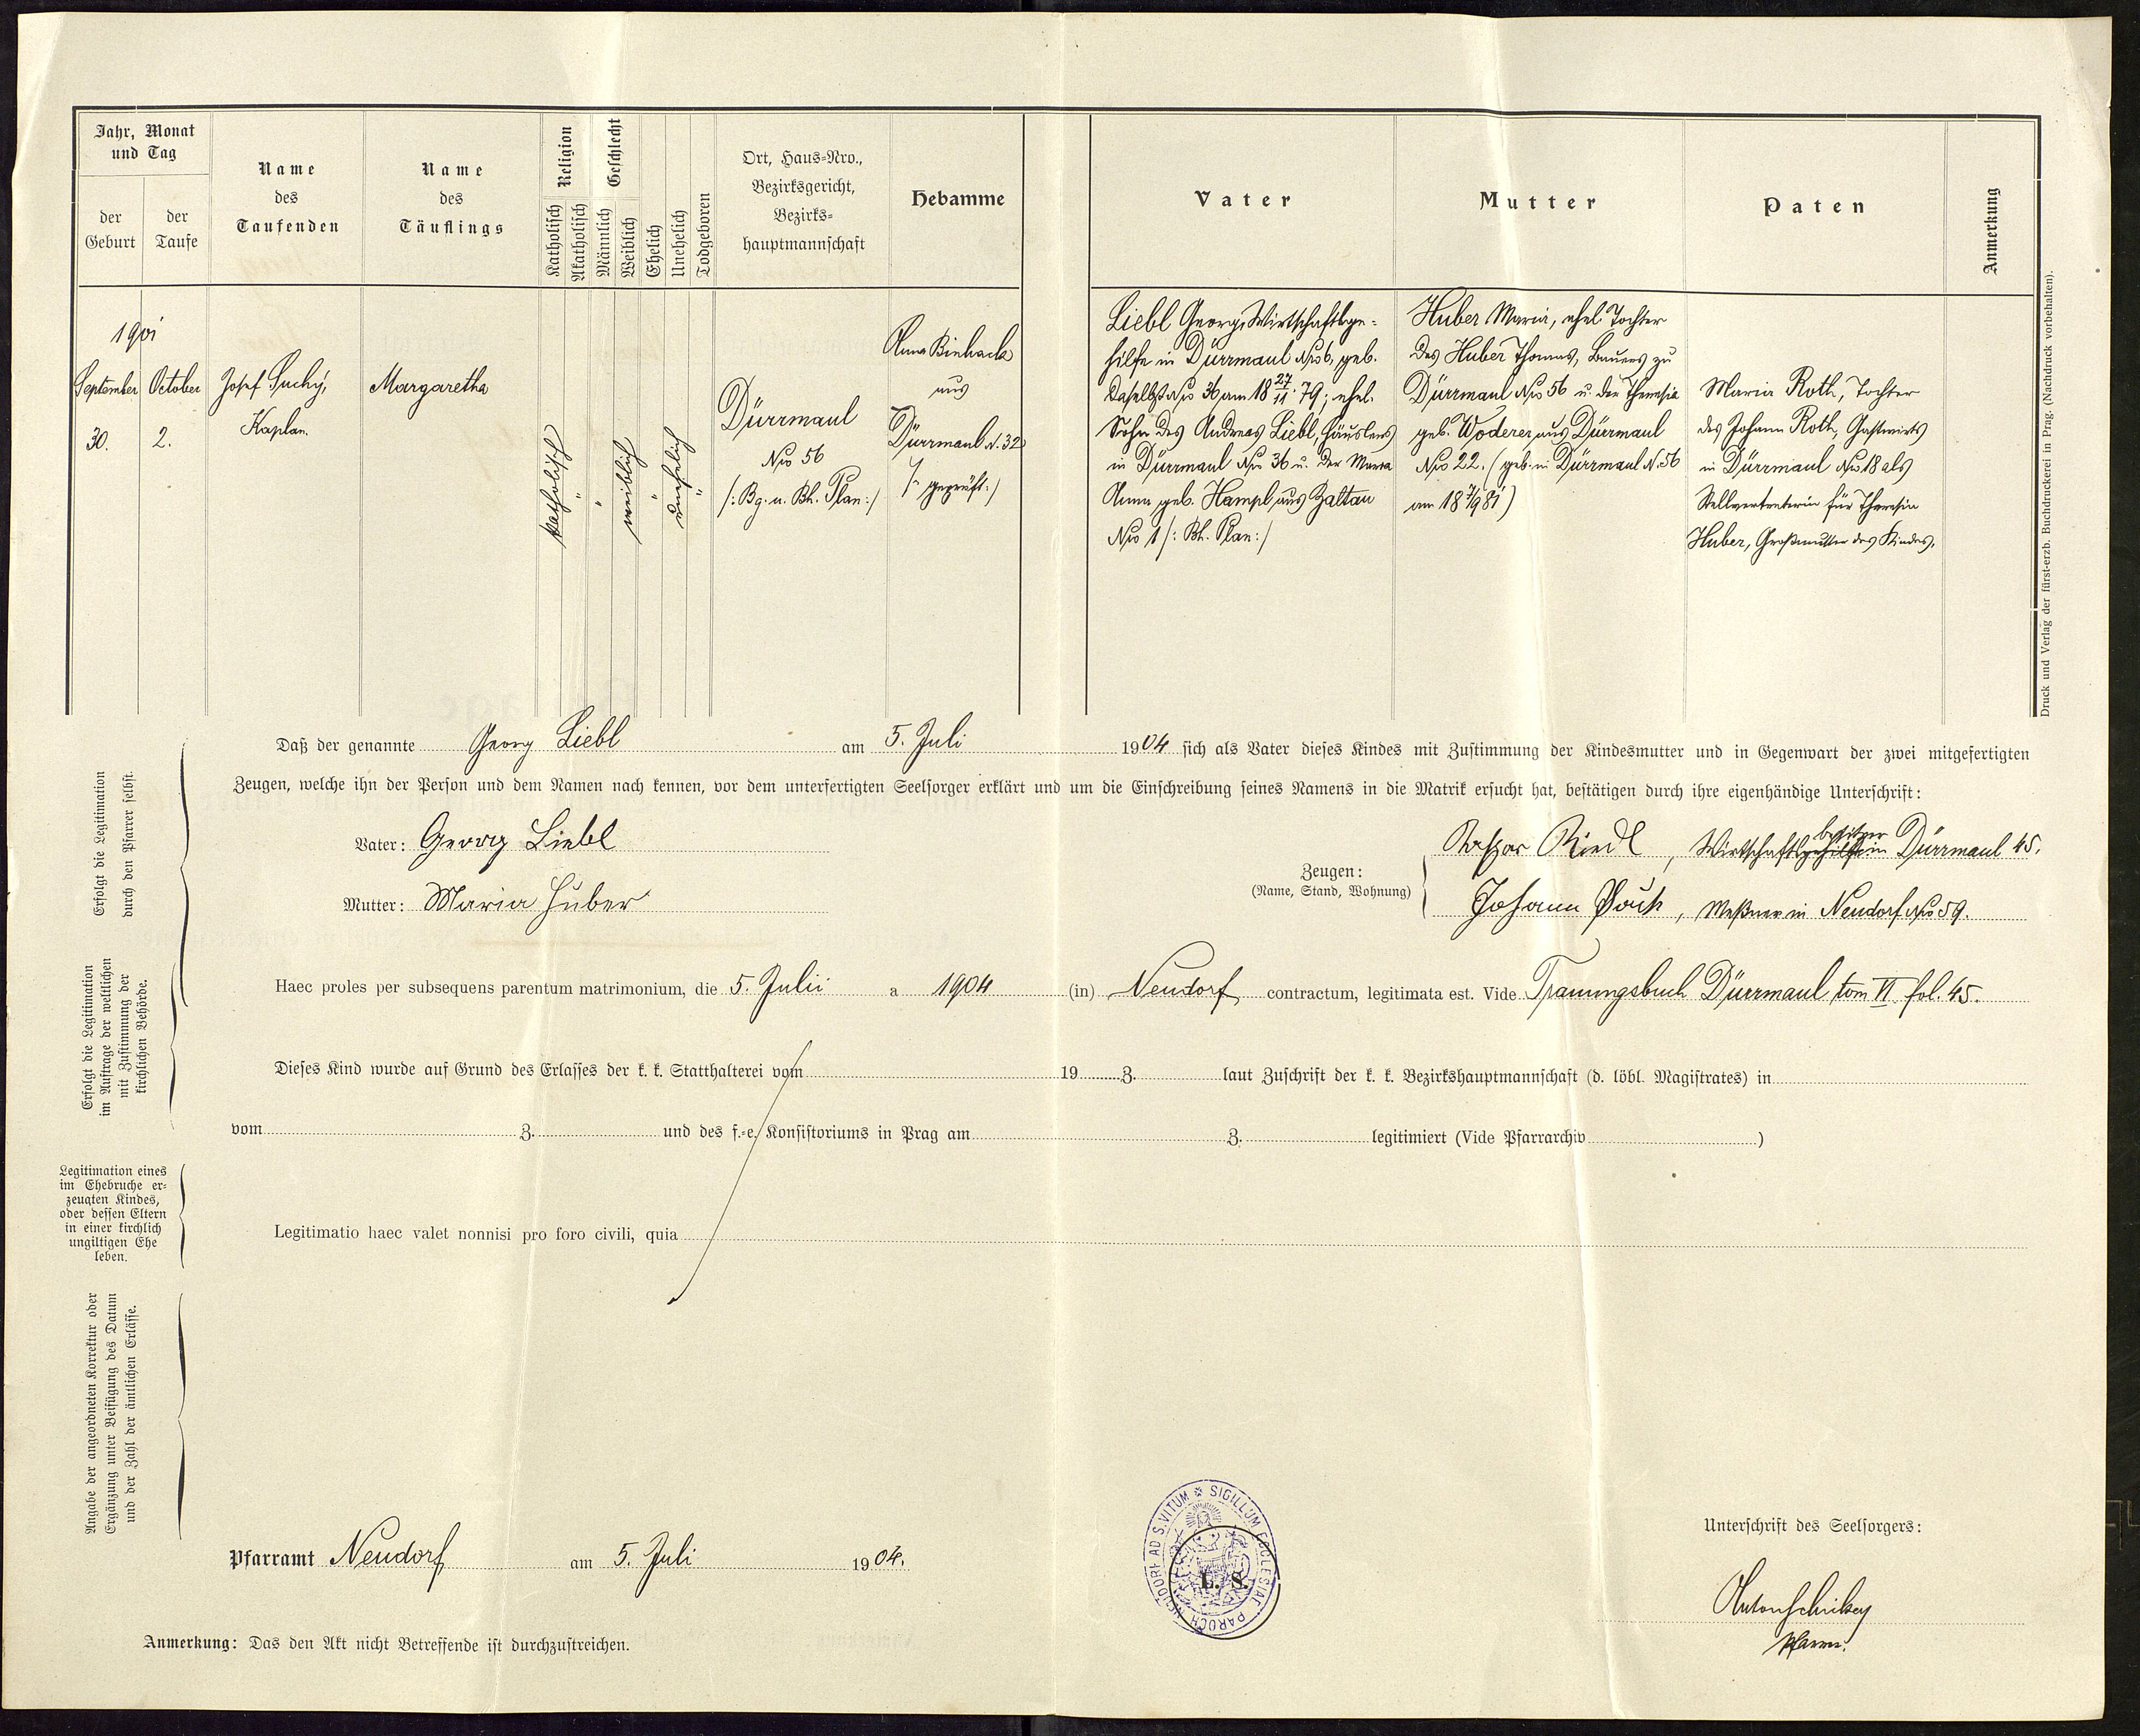 Jahr, Monat
und Tag
der
Geburt
der
Taufe
Name
des
Taufenden
Name
des
Täuflings
Religion
Katholisch
Akatholisch
Geschlecht
Männlich
Weiblich
Ehelich
Unehelich
Todgeboren
Ort, Haus-Nro.,
Bezirksgericht,
Bezirks-
hauptmannschaft
Hebamme
Vater
Mutter
Paten
Anmerkung
1901
September
30.
October
2.
Josef Suchý,
Kaplan.
Margaretha
katholisch
"
"
weiblich
"
unehelich
"
Dürrmaul
Nro 56
/: Bg. u. Bh. Plan :/
Anna Binhack
aus
Dürrmaul N. 32
/: geprüft :/
Liebl Georg, Wirtschaftsge-
hilfe in Dürrmaul Nro 6, geb.
daselbst Nro 36 am 18 27/11 79; ehel.
Sohn des Andreas Liebl, Häuslers
in Dürrmaul Nro 36 u. der Maria
Anna geb. Hampl aus Zaltau
Nro 1 /: Bh. Plan :/
Huber Maria, ehel. Tochter
des Huber Thomas, Bauers zu
Dürrmaul Nro 56 u. der Theresia
geb. Woderer aus Dürrmaul
Nro 22. (geb. in Dürrmaul N. 56
am 18 7/9 81)
Maria Roth, Tochter
des Johann Roth, Gastwirts
in Dürrmaul Nro 18 als
Stellvertreterin für Theresia
Huber, Großmutter des Kindes.
Druck und Verlag der fürst-erzb. Buchdruckerei in Prag. (Nachdruck vorbehalten).
Erfolgt die Legitimation
durch den Pfarrer selbst.
Daß der genannte Georg Liebl am 5. Juli 1904 sich als Vater dieses Kindes mit Zustimmung der Kindesmutter und in Gegenwart der zwei mitgefertigten
Zeugen, welche ihn der Person und dem Namen nach kennen, vor dem unterfertigten Seelsorger erklärt und um die Einschreibung seines Namens in die Matrik ersucht hat, bestätigen durch ihre eigenhändige Unterschrift:
Vater: Georg Liebl
Mutter: Maria Huber
Zeugen:
(Name, Stand, Wohnung)
Kaspar Riedl, Wirtschaftsbesitzer in Dürrmaul 45.
Johann , Meßner in Neudorf Nro 59.
Haec proles per subsequens parentum matrimonium, die 5. Julii a 1904 (in) Neudorf contractum, legitimata est. Vide Trauungsbuch Dürrmaul tom VI fol. 45.
Erfolgt die Legitimation
im Auftrage der weltlichen
mit Zustimmung der
kirchlichen Behörde.
Dieses Kind wurde auf Grund des Erlasses der k. k. Statthalterei vom 19 Z. laut Zuschrift der k. k. Bezirkshauptmannschaft (d. löbl. Magistrates) in
vom Z. und des f.-e. Konsistoriums in Prag am Z. legitimiert (Vide Pfarrarchiv )
Legitimation eines
im Ehebruche er-
zeugten Kindes,
oder dessen Eltern
in einer kirchlich
ungiltigen Ehe
leben.
Legitimatio haec valet nonnisi pro foro civili, quia
Angabe der angeordneten Korrektur oder
Ergänzung unter Beifügung des Datum
und der Zahl der ämtlichen Erlässe.
Pfarramt Neudorf am 5. Juli 1904.
SIGILLUM ECCLESIAE PAROCH NEUDORF AD S. VITUM
L. S.
Unterschrift des Seelsorgers:
Anton
Pfarrer.
Anmerkung: Das den Akt nicht Betreffende ist durchzustreichen.